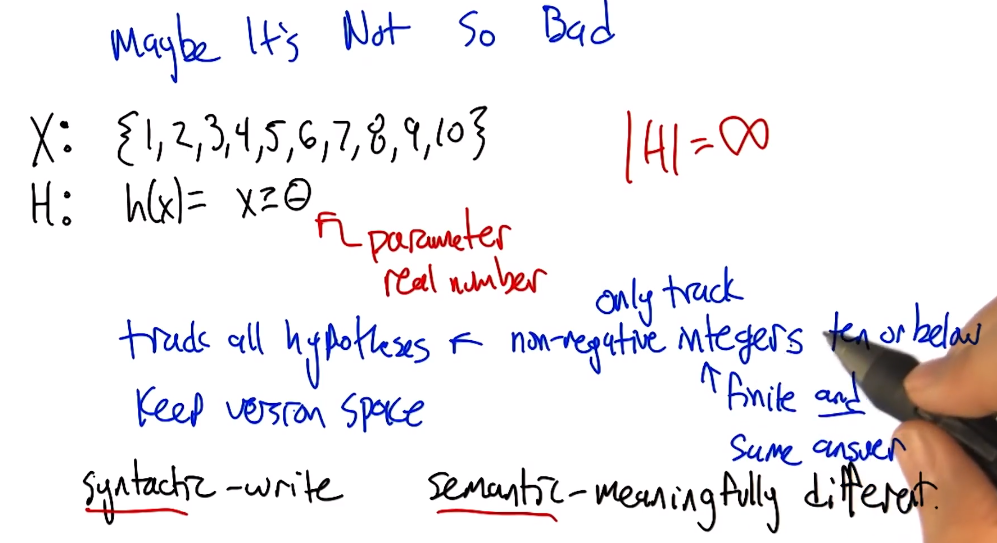 Maybe It's Not So Bad
X: {1,2,3,4,5,6,7,8,9,10}
|H|=∞
H: h(x)= x≥θ
parameter
real number
only track
track all hypotheses ← non-negative integers ten or below
Keep version space
↑ finite and
same answer
syntactic-write semantic-meaningfully different.